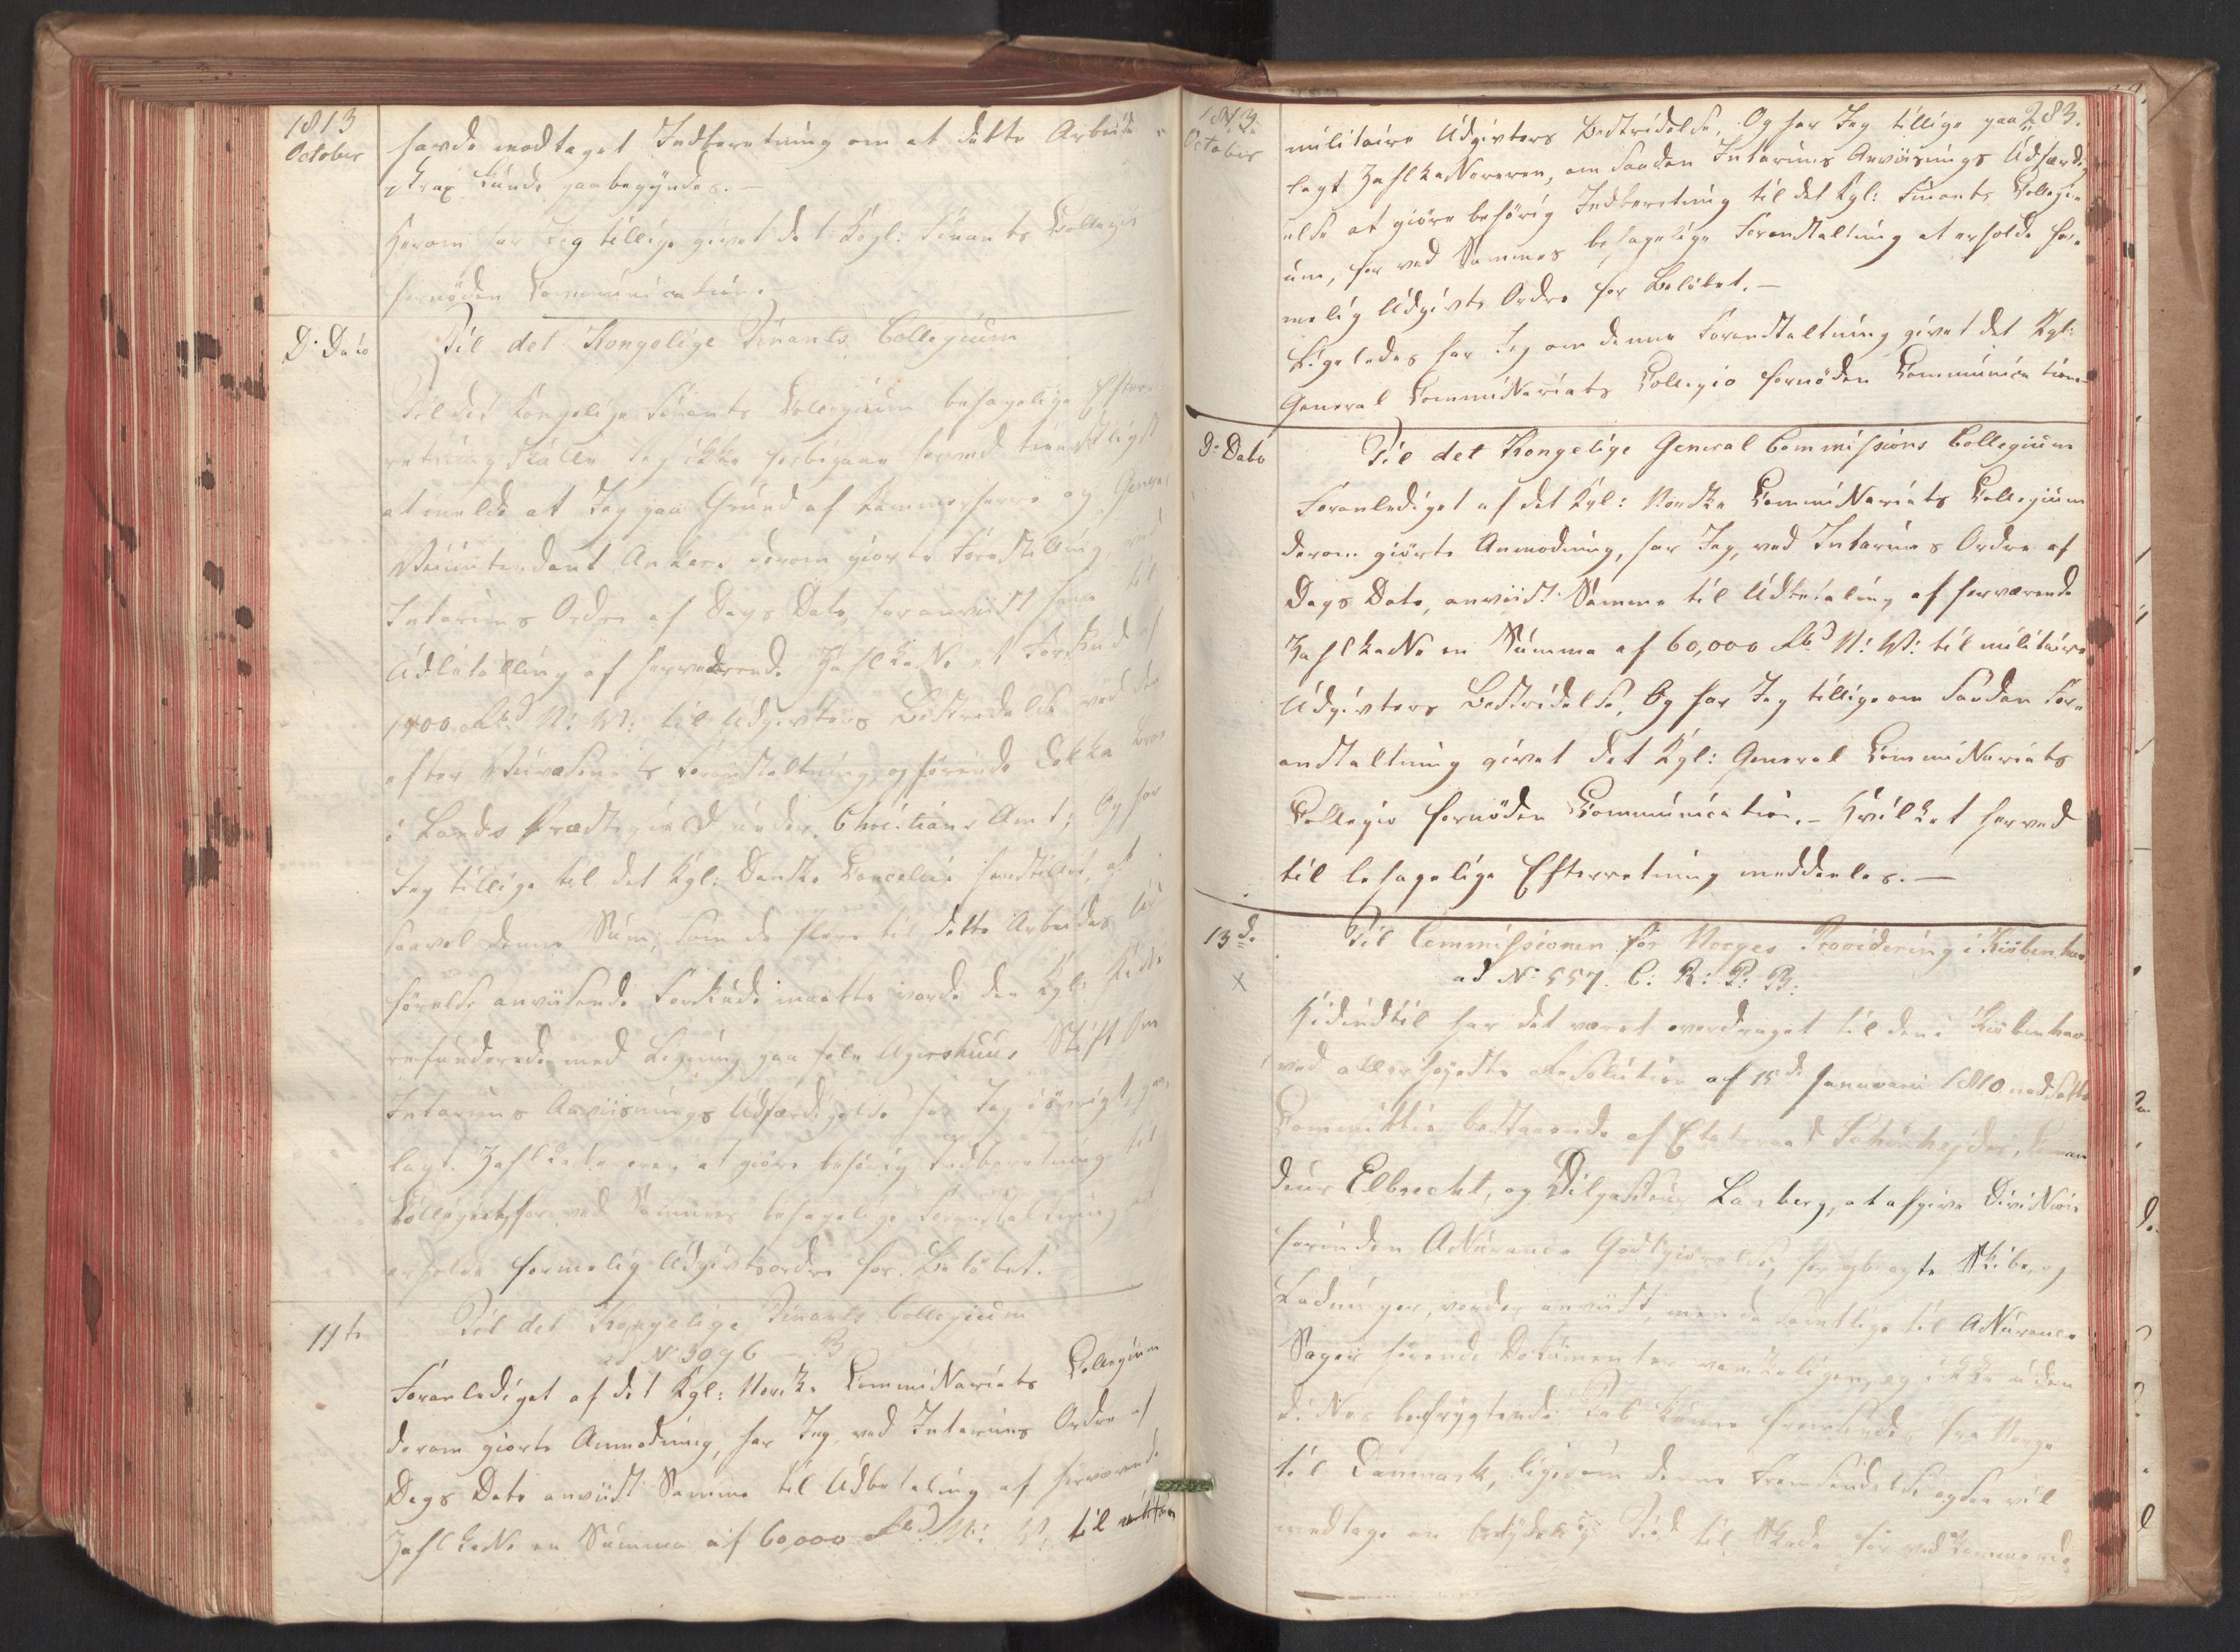 1813
October
havde modtaget Indberetning om at dette Arbeide
strax kunde paabegyndes.—
Herom har Jeg tillige givet det Kongl: Finants Collegie
fornøden Communication.
D: Dato
Til det Kongelige Finants Collegium
Til det Kongelige Finants Collegium behagelige Efter-
retning skulle Jeg ikke forbigaae herved tienstligst
at melde at Jeg paa Grund af Kammerherre og General
Veiintendant Ankers derom giorte Forestilling, ved
Interims Ordre af Dags Dato, har anviist ham til
Udbetalling af herværende Zahlkasse et Forskud af
1400 Rbd N: V: til Udgivters Bestridelse ved den
efter Veivæsenets Foranstaltning opførende Dokka Broe
i Lands Præstegield under Christians Amt; Og har
Jeg tillige til det Kgl: Danske Cancelli henstillet, at
saavel denne Sum, som de flere til dette Arbeides Ud-
førelse anviisende Forskude maatte vorde den Kgl: Kasse
refunderede med Ligning paa hele Agershuus Stift Om
Interims Anviisnings Udfærdigelse har Jeg iøvrigt, paa-
lagt Zahlkassereren at giøre behørig Indberetning til
Collegiet, for ved Sammes behagelige Foranstaltning at
erholde formelig Udgivtsordre for Beløbet.
11te
Til det Kongelige Finants Collegium
ad No 3096 — B
Foranlediget af det Kgl: Norske Commissariats Collegium
derom giorte Anmodning, har Jeg, ved Interims Ordre af
Dags Dato anviist Samme til Udbetaling af herværende
Zahlkasse en Summa af 60,000 Rbd N: V: til militaire
1813
October
283.
militaire Udgivters Bestridelse, Og har Jeg tillige paa-
lagt Zahlkassereren, om saadan Interims Anviisnings Udfærdig-
else at giøre behørig Indberetning til det Kgl: Finants Collegi-
um, for ved Sammes behagelige Foranstaltning at erholde for-
melig Udgivts Ordre for Beløbet.—
Ligeledes har Jeg om denne Foranstaltning givet det Kgl:
General Commissariats Collegio fornøden Communication
D: Dato
Til det Kongelige General Commissions Collegium
Foranlediget af det Kgl: Norske Commissariats Collegium
derom giørte Anmodning, har Jeg, ved Interims Ordre af
Dags Dato, anviist Samme til Udbetaling af herværende
Zahlkasse en Summa af 60,000 Rbd N: V: til militaire
Udgivters Bestridelse, Og har Jeg tillige om saadan For-
anstaltning givet det Kgl: General Commissariats
Collegio fornøden Communication.— Hvilket herved
til behagelige Efterretning meddeeles.—
13de
X
Til Commissionen for Norges Providering i Kiøbenhavn
ad No 557. C: R: P: B:
Hidindtil har det været overdraget til den i Kiøbenhavn
ved allerhøyeste Resolution af 15de Januarii 1810 nedsatte
Committee bestaaende af Etatsraad Schönheyder, Comman-
deur Elbrecht, og Dispacheur Lasberg, at afgive Decision
hvorinden Assurance Godtgiørelse, for opbragte Skibe og
Ladninger, vorder anviist, men da samtlige til Assurance
Sagers hørende Dokumenter vanskeligen, og ikke uden
disses befrygtende Tab kunne fremsendes fra Norge
til Danmark, ligesom denne Fremsendelse ogsaa vil
medtage en betydelig Tiid til Skade for vedkommende